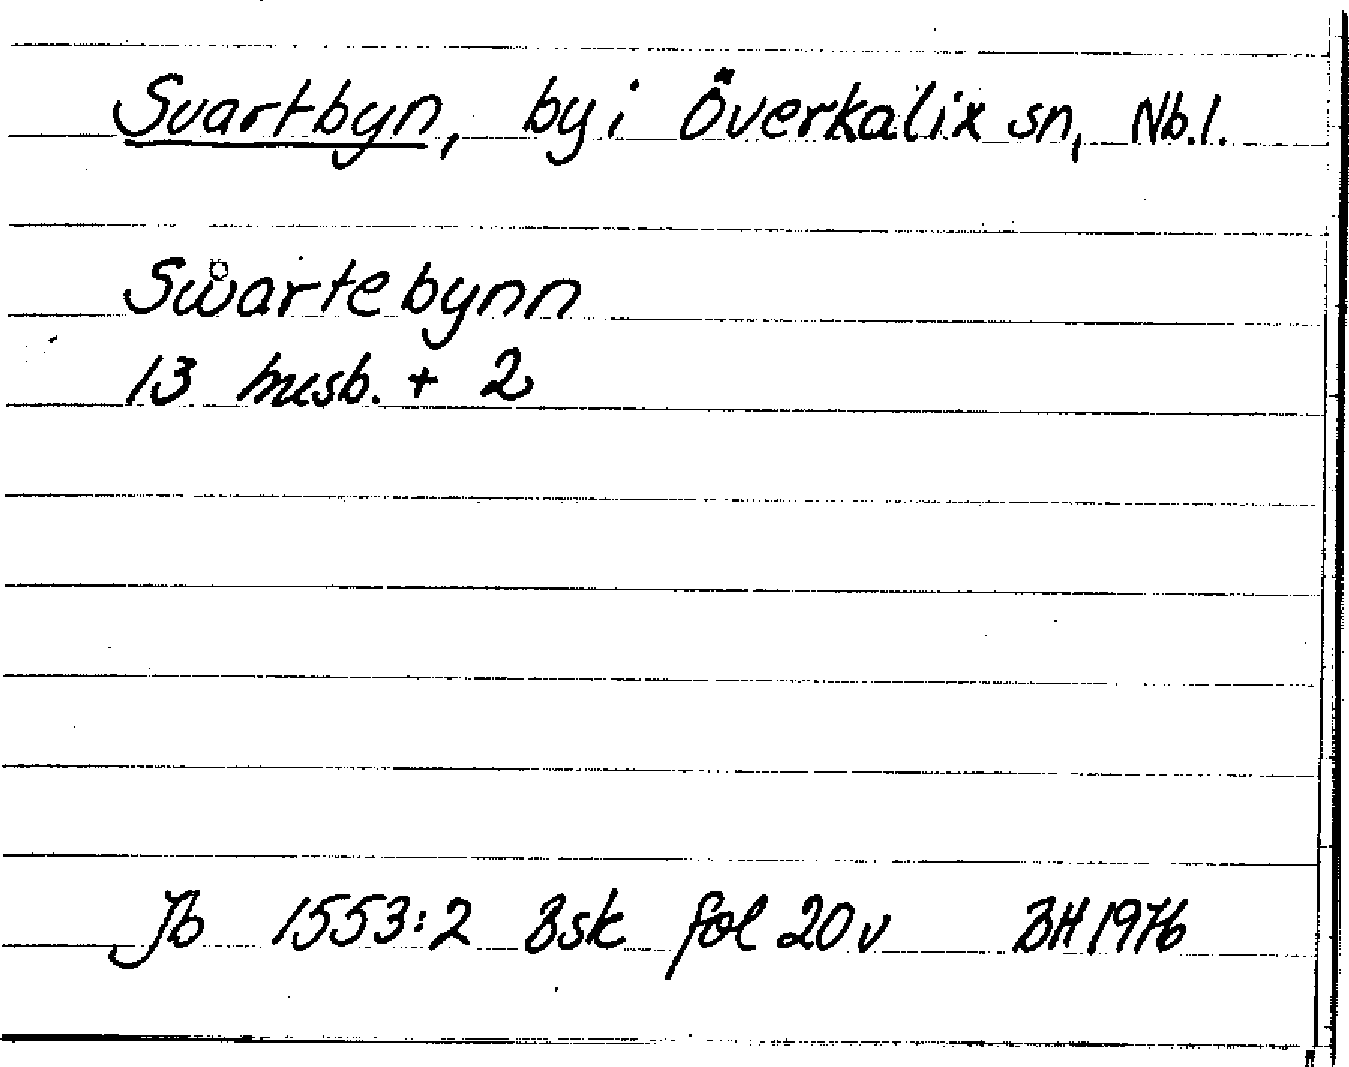 Svartbyn, by i Överkalix sn, Nb.l.
Sẘartebynn
13 husb. + 2
Jb 1553:2 Bsk fol 20 v BH 1976